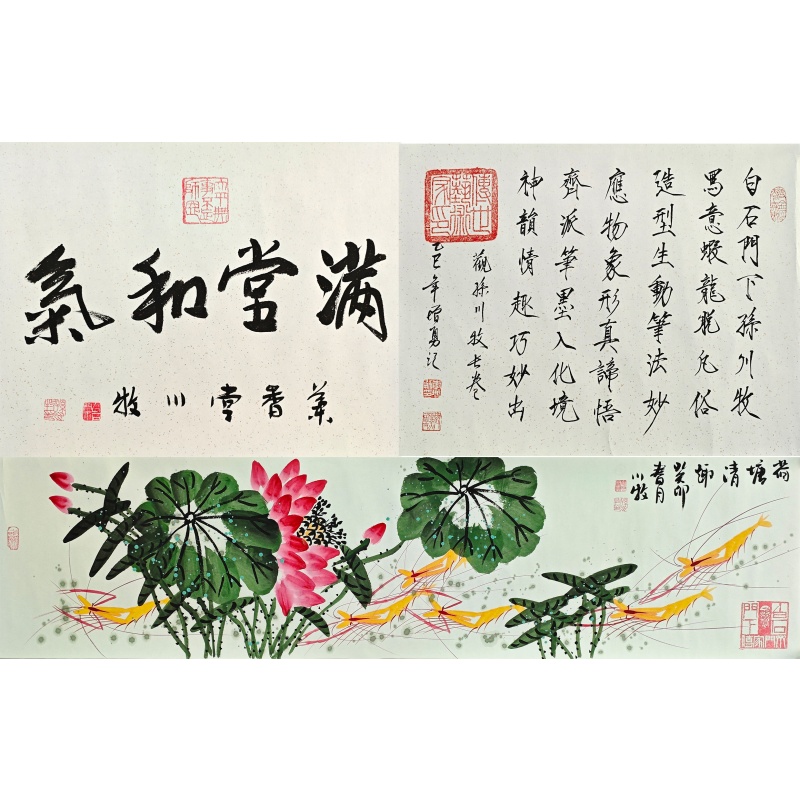 满堂和氣
萃香堂川牧
白石門下孫川牧
寫意蝦龍脱凡俗
造型生動筆法妙
應物象形真諦悟
齊派筆墨入化境
神韻情趣巧妙出
觀孫川牧长卷
乙巳年
荷塘清趣
癸卯
春月
川牧